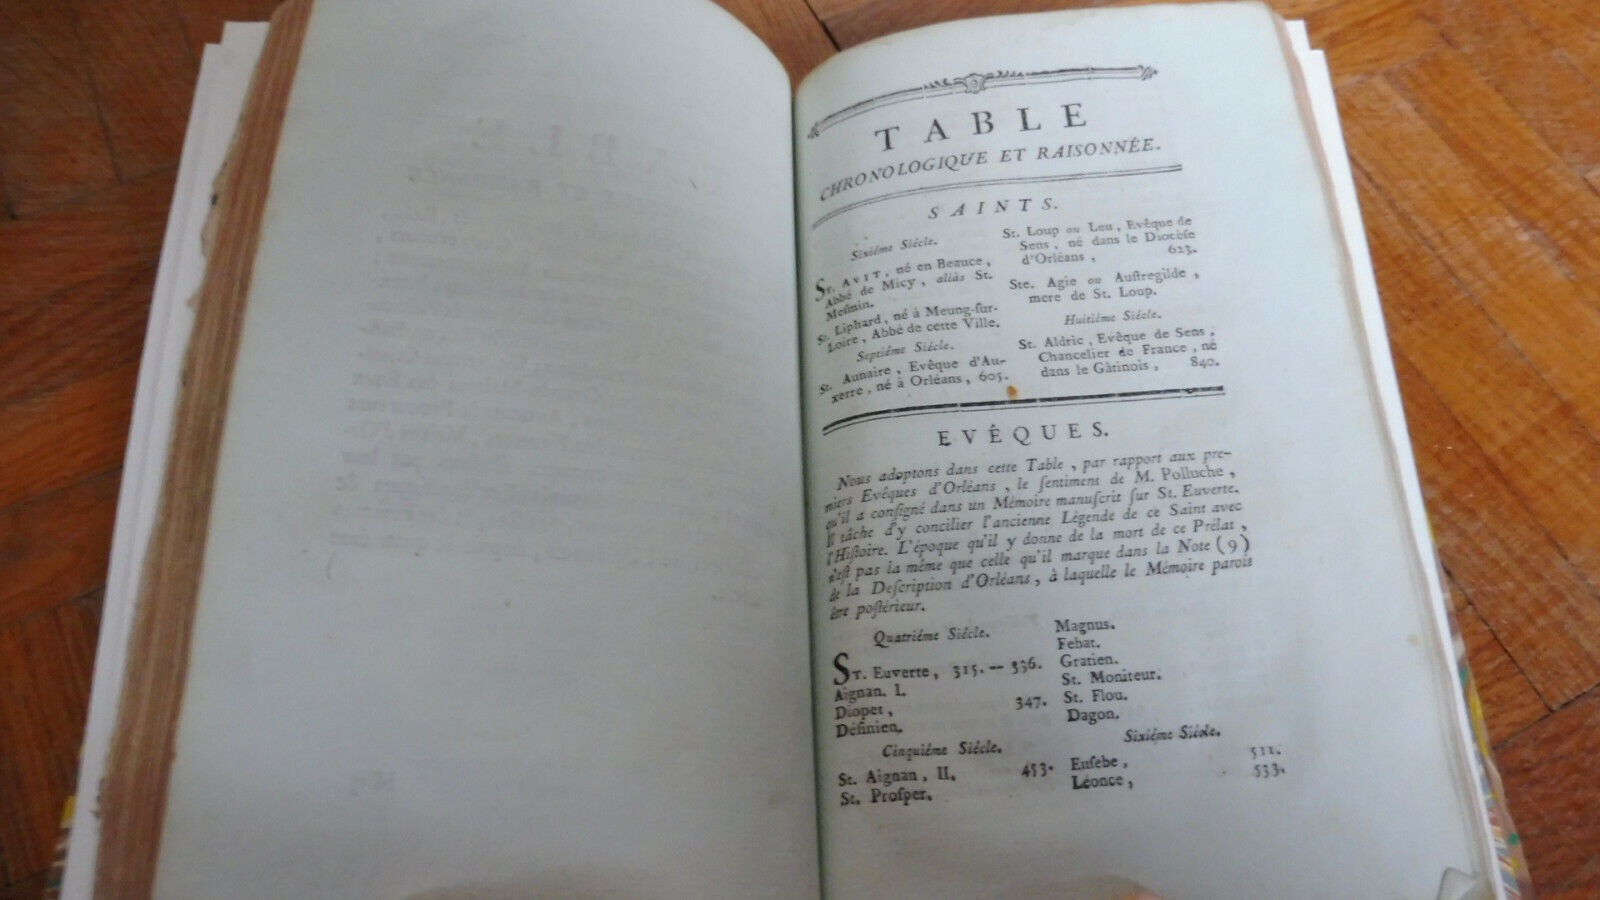 TABLE
CHRONOLOGIQUE ET RAISONNÉE.
SAINTS.
Sixiéme Siécle.
ST. AVIT, né en Beauce,
Abbé de Micy, aliàs St.
Mesmin.
St. Liphard, né à Meung-sur-
Loire, Abbé de cette Ville.
Septiéme Siécle.
St. Aunaire, Evêque d'Au-
xerre, né à Orléans, 605.
St. Loup ou Leu, Evêque de
Sens, né dans le Diocèse
d'Orléans, 623.
Ste. Agie ou Austregilde,
mere de St. Loup.
Huitiéme Siécle.
St. Aldric, Evêque de Sens,
Chancelier de France, né
dans le Gâtinois, 840.
EVÊQUES.
Nous adoptons dans cette Table, par rapport aux pre-
miers Evêques d'Orléans, le sentiment de M. Polluche,
qu'il a consigné dans un Mémoire manuscrit sur St. Euverte.
Il tâche d'y concilier l'ancienne Légende de ce Saint avec
l'Histoire. L'époque qu'il y donne de la mort de ce Prélat,
n'est pas la même que celle qu'il marque dans la Note (9)
de la Description d'Orléans, à laquelle le Mémoire parois
être postérieur.
Quatriéme Siécle.
ST. Euverte, 315. — 336.
Aignan. I.
Diopet, 347.
Définien.
Cinquiéme Siécle.
St. Aignan, II. 453.
St. Prosper.
Magnus.
Febat.
Gratien.
St. Moniteur.
St. Flou.
Dagon.
Sixiéme Siécle.
Eusebe, 511.
Léonce, 533.